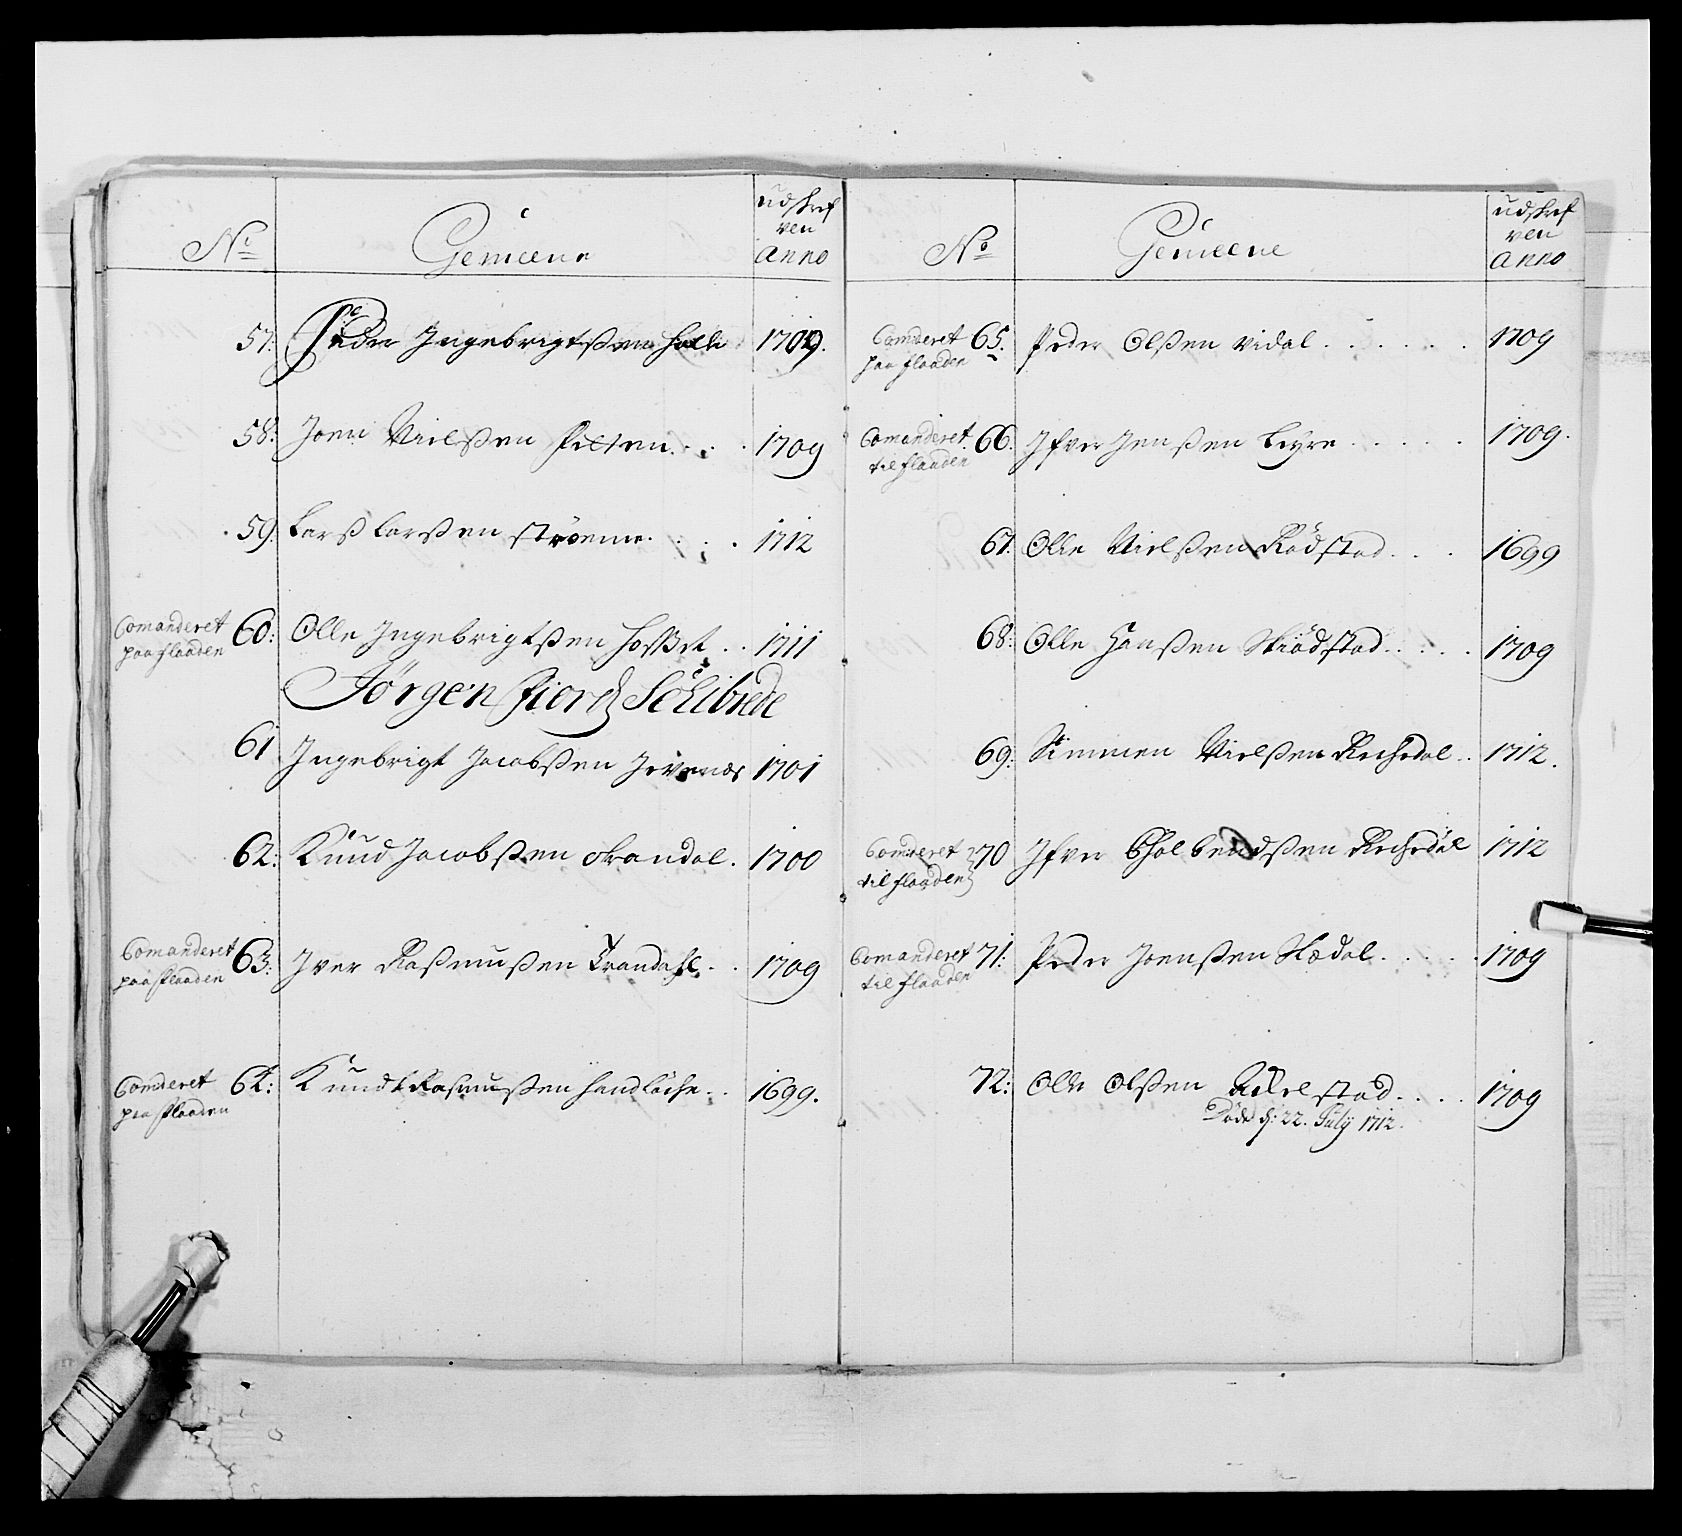 No Gemeene udskref
ven
Anno
57: Peder Ingebrigtßen Holle 1709.
58: Joen Nielßen Pilten . . . 1709
59. Larß Larßen Strömme . . . 1712
Comanderet
paa flaaden 60: Olle Ingebrigtßen Hoßet . . 1711
Jørgen Fiord
61 Ingebrigt Jacobßen 1701
62: Knud Jacobßen Trandal . 1700
Comanderet
paa flaaden 63: Iver Raßmußen Trandahl . . 1709
Comderet
paa flaaden 64: Knud Rasmußen . . 1699.
No Gemeene udskref
ven
Anno
Comderet
paa flaaden 65. Peder Olßen Vidal . . . . . . 1709
Comanderet
til flaaden 66. Ifver Jenßen Leyre . . . . . 1709.
67. Olle Nielßen Rödstad . . . 1699
68: Olle Hanßen Skiödstad . . . . 1709
69: Simmen Nielßen Rechedal . . 1712.
Comderet
til flaaden 70 Ifver Rechedal 1712
Comanderet
til flaaden 71: Peder Joenßen Nædal . . . . . 1709
72: Olle Olßen stad . . . . 1709
Döde d: 22. July 1712.